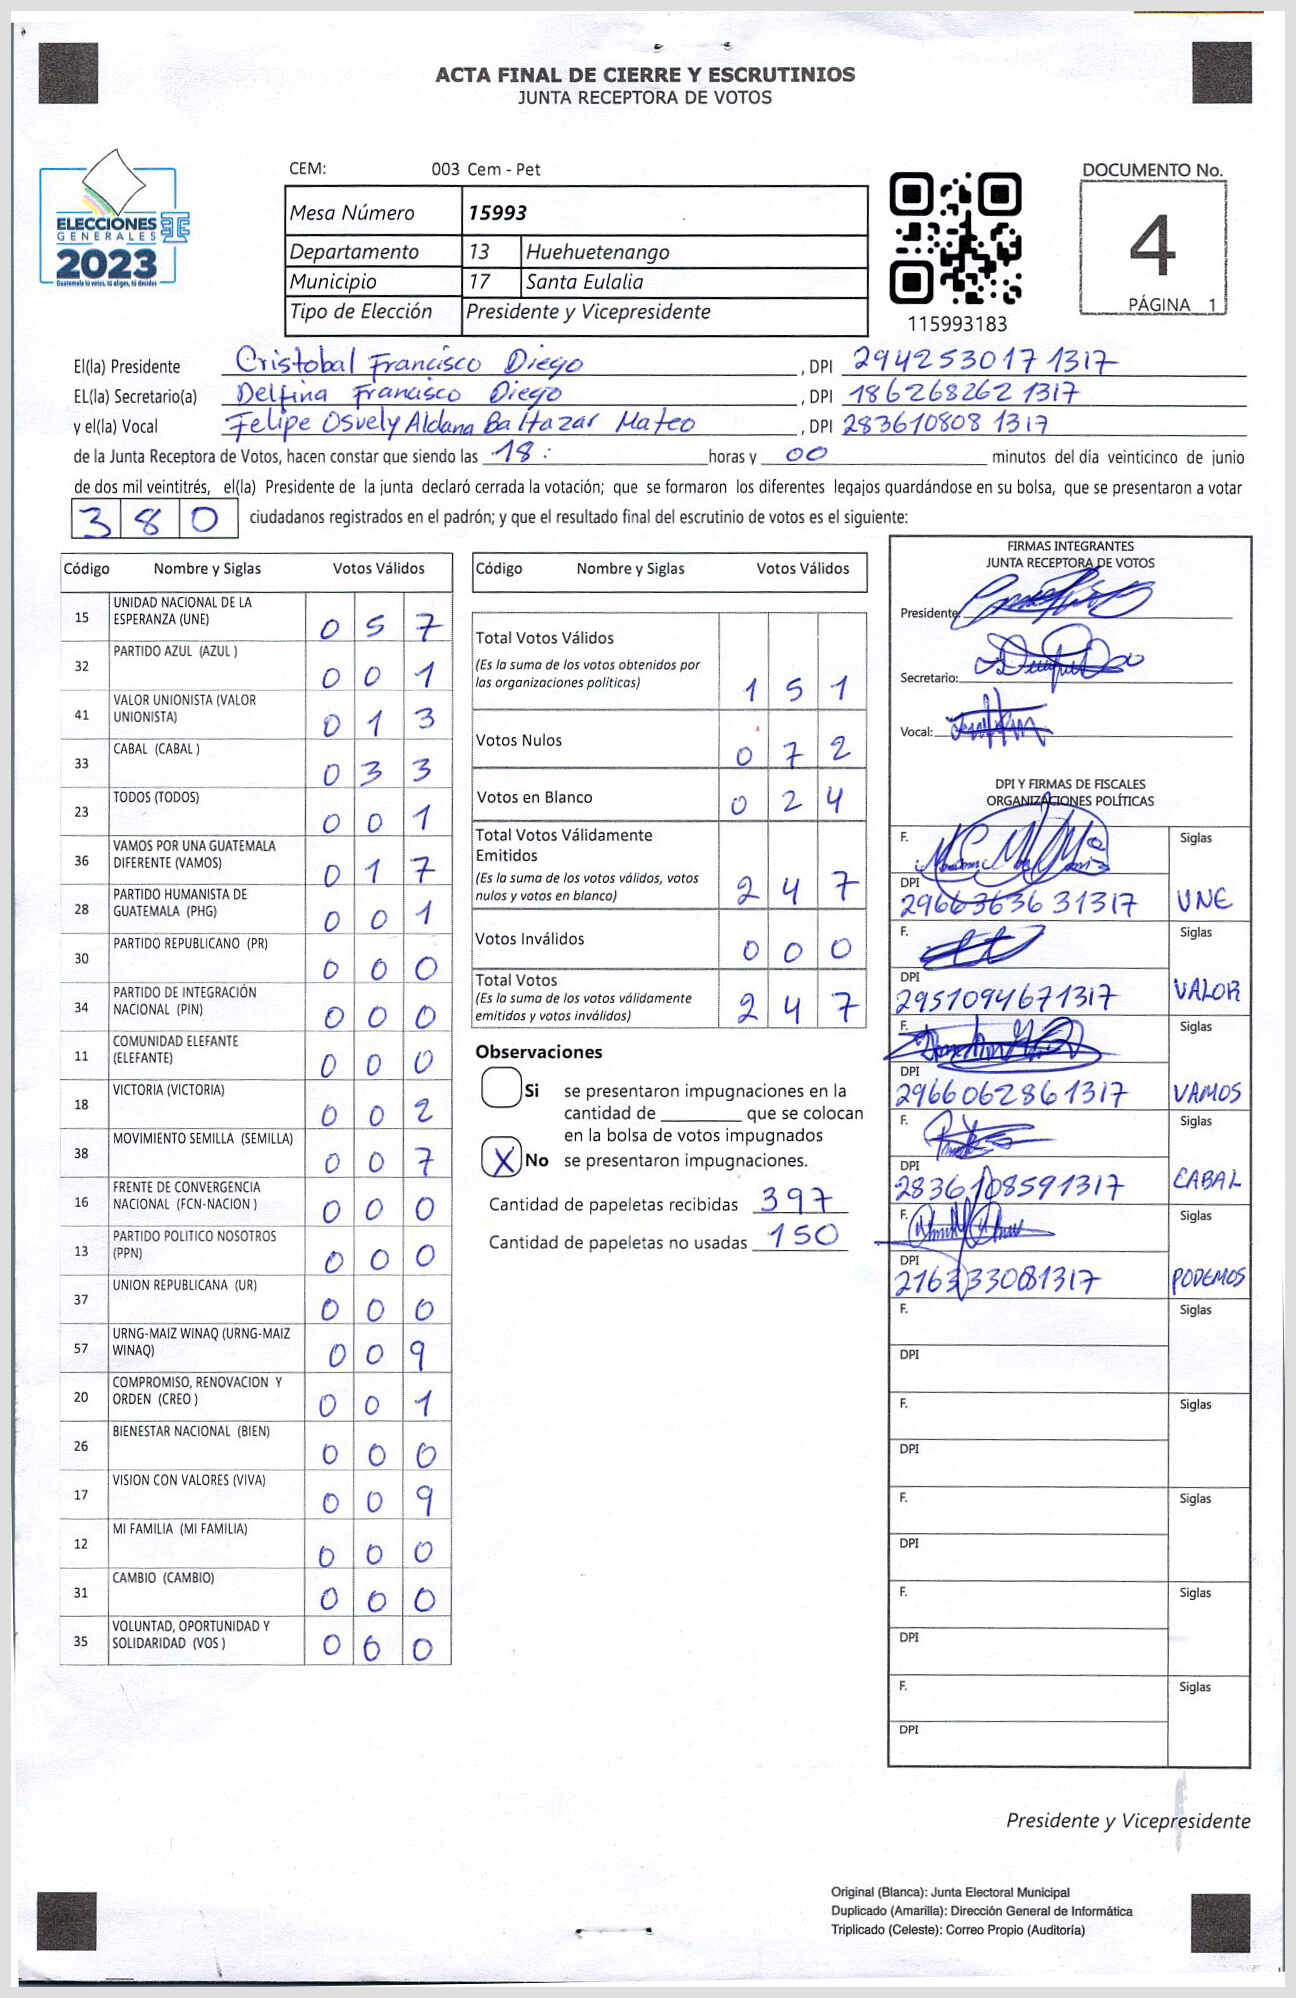 ACTA FINAL DE CIERRE Y ESCRUTINIOS
JUNTA RECEPTORA DE VOTOS
ELECCIONES
GENERALES
2023
Guatemala tu votas, tú eliges, tú decides
CEM: 003 Cem - Pet
Mesa Número 15993
Departamento 13 Huehuetenango
Municipio 17 Santa Eulalia
Tipo de Elección Presidente y Vicepresidente
115993183
DOCUMENTO No.
4
PÁGINA 1
El(la) Presidente Cristobal Francisco Diego , DPI 2942530171317
EL(la) Secretario(a) Delfina Francisco Diego , DPI 1862682621317
y el(la) Vocal Felipe Osvely Aldana Baltazar Mateo , DPI 2836108081317
de la Junta Receptora de Votos, hacen constar que siendo las 18: horas y 00 minutos del día veinticinco de junio
de dos mil veintitrés, el(la) Presidente de la junta declaró cerrada la votación; que se formaron los diferentes legajos guardándose en su bolsa, que se presentaron a votar
380 ciudadanos registrados en el padrón; y que el resultado final del escrutinio de votos es el siguiente:
Código Nombre y Siglas Votos Válidos
15 UNIDAD NACIONAL DE LA ESPERANZA (UNE) 0 5 7
32 PARTIDO AZUL (AZUL ) 0 0 1
41 VALOR UNIONISTA (VALOR UNIONISTA) 0 1 3
33 CABAL (CABAL ) 0 3 3
23 TODOS (TODOS) 0 0 1
36 VAMOS POR UNA GUATEMALA DIFERENTE (VAMOS) 0 1 7
28 PARTIDO HUMANISTA DE GUATEMALA (PHG) 0 0 1
30 PARTIDO REPUBLICANO (PR) 0 0 0
34 PARTIDO DE INTEGRACIÓN NACIONAL (PIN) 0 0 0
11 COMUNIDAD ELEFANTE (ELEFANTE) 0 0 0
18 VICTORIA (VICTORIA) 0 0 2
38 MOVIMIENTO SEMILLA (SEMILLA) 0 0 7
16 FRENTE DE CONVERGENCIA NACIONAL (FCN-NACION ) 0 0 0
13 PARTIDO POLITICO NOSOTROS (PPN) 0 0 0
37 UNION REPUBLICANA (UR) 0 0 0
57 URNG-MAIZ WINAQ (URNG-MAIZ WINAQ) 0 0 9
20 COMPROMISO, RENOVACION Y ORDEN (CREO ) 0 0 1
26 BIENESTAR NACIONAL (BIEN) 0 0 0
17 VISION CON VALORES (VIVA) 0 0 9
12 MI FAMILIA (MI FAMILIA) 0 0 0
31 CAMBIO (CAMBIO) 0 0 0
35 VOLUNTAD, OPORTUNIDAD Y SOLIDARIDAD (VOS ) 0 0 0
Código Nombre y Siglas Votos Válidos
Total Votos Válidos
(Es la suma de los votos obtenidos por
las organizaciones políticas) 1 5 1
Votos Nulos 0 7 2
Votos en Blanco 0 2 4
Total Votos Válidamente
Emitidos
(Es la suma de los votos válidos, votos
nulos y votos en blanco) 2 4 7
Votos Inválidos 0 0 0
Total Votos
(Es la suma de los votos válidamente
emitidos y votos inválidos) 2 4 7
Observaciones
Si se presentaron impugnaciones en la
cantidad de ________ que se colocan
en la bolsa de votos impugnados
X No se presentaron impugnaciones.
Cantidad de papeletas recibidas 397
Cantidad de papeletas no usadas 150
FIRMAS INTEGRANTES
JUNTA RECEPTORA DE VOTOS
Presidente:
Secretario:
Vocal:
DPI Y FIRMAS DE FISCALES
ORGANIZACIONES POLÍTICAS
F. Siglas
DPI
2966363631317 UNE
F. Siglas
DPI
2951094671317 VALOR
F. Siglas
DPI
2966062861317 VAMOS
F. Siglas
DPI
2836108591317 CABAL
F. Siglas
DPI
2163333081317 PODEMOS
F. Siglas
DPI
F. Siglas
DPI
F. Siglas
DPI
F. Siglas
DPI
F. Siglas
DPI
Presidente y Vicepresidente
Original (Blanca): Junta Electoral Municipal
Duplicado (Amarilla): Dirección General de Informática
Triplicado (Celeste): Correo Propio (Auditoría)